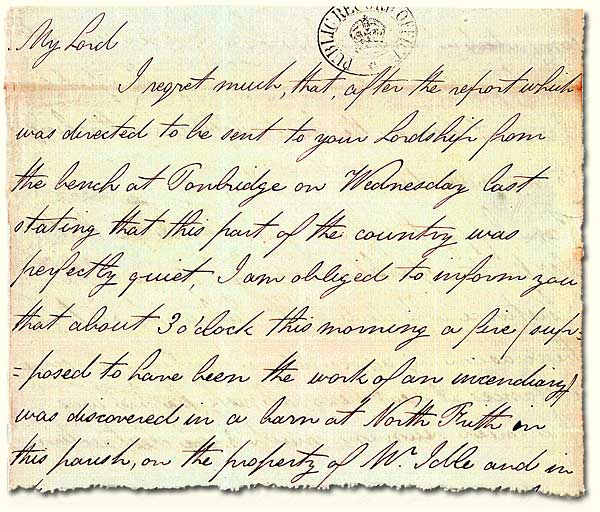 PUBLIC RECORD OFFICE
My Lord
I regret much, that, after the report which
was directed to be sent to your Lordship from
the bench at Tonbridge on Wednesday last
stating that this part of the country was
perfectly quiet, I am obliged to inform you
that about 3 o'clock this morning a fire (sup=
=posed to have been the work of an incendiary)
was discovered in a barn at North Frith in
this parish, on the property of Mr. Idle and in